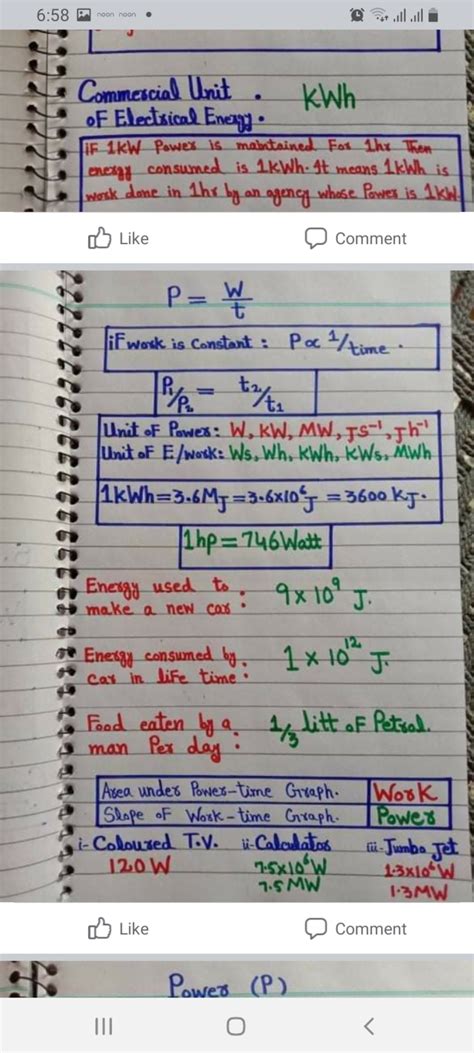 6:58 noon noon
Commercial Unit . kWh
of Electrical Energy.
iF 1kW Power is maintained For 1hr Then
energy consumed is 1kWh. It means 1kWh is
work done in 1hr by an agency whose Power is 1kW.
Like Comment
P = W/t
iF work is Constant : P ∝ 1/time .
P1/P2 = t2/t1
Unit of Power: W, KW, MW, Js⁻¹, Jh⁻¹
Unit oF E/work: Ws, Wh, KWh, KWs, MWh
1kWh=3.6MJ=3.6x10⁶J = 3600 KJ.
1hp=746Watt
Energy used to
make a new car : 9 x 10⁹ J.
Energy consumed by
car in life time : 1 x 10¹² J.
Food eaten by a
man Per day : 1/3 litt oF Petrol.
Area under Power-time Graph. Work
Slope of Work-time Graph. Power
i- Coloured T.V. ii- Calculator iii- Jumbo Jet
120W 7.5x10⁶W 1.3x10⁶W
7.5MW 1.3MW
Like Comment
Power (P)